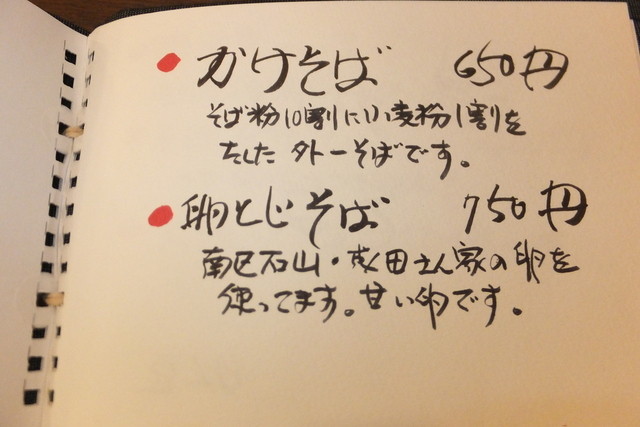 かけそば 650円
そば粉10割に小麦粉1割を
たした 外一そばです。
卵とじそば 750円
南区石山・成田さん家の卵を
使ってます。甘い卵です。